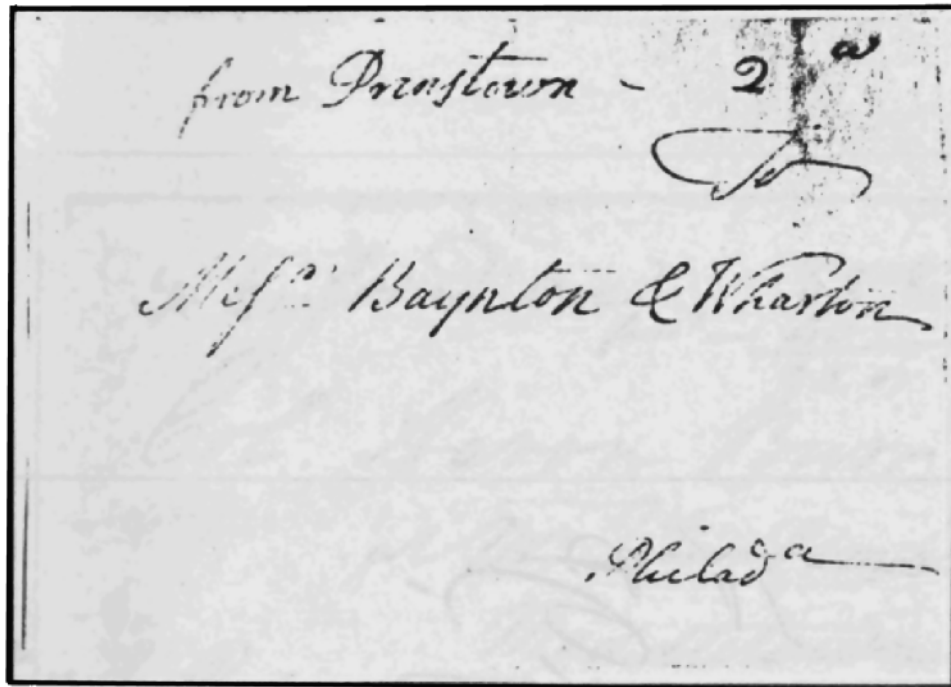 from Prinstown - 2
Messrs Baynton & Wharton
Philada